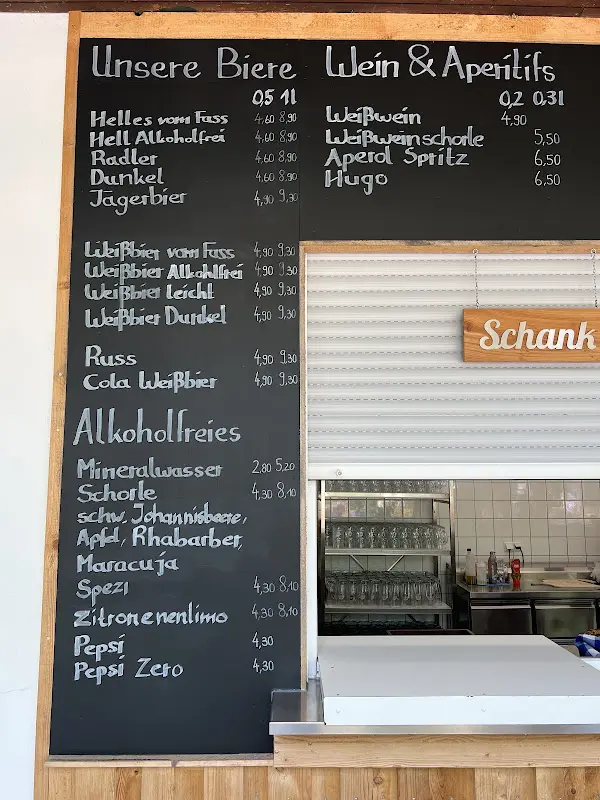 Unsere Biere
0,5 1l
Helles vom Fass 4,60 8,90
Hell Alkoholfrei 4,60 8,90
Radler 4,60 8,90
Dunkel 4,60 8,90
Jägerbier 4,90 9,30
Weißbier vom Fass 4,90 9,30
Weißbier Alkohlfrei 4,90 9,30
Weißbier leicht 4,90 9,30
Weißbier Dunkel 4,90 9,30
Russ 4,90 9,30
Cola Weißbier 4,90 9,30
Alkoholfreies
Mineralwasser 2,80 5,20
Schorle 4,30 8,10
schw. Johannisbeere,
Apfel, Rhabarber,
Maracuja
Spezi 4,30 8,10
Zitronenenlimo 4,30 8,10
Pepsi 4,30
Pepsi Zero 4,30
Wein & Aperitifs
0,2 0,3l
Weißwein 4,90
Weißweinschorle 5,50
Aperol Spritz 6,50
Hugo 6,50
Schank